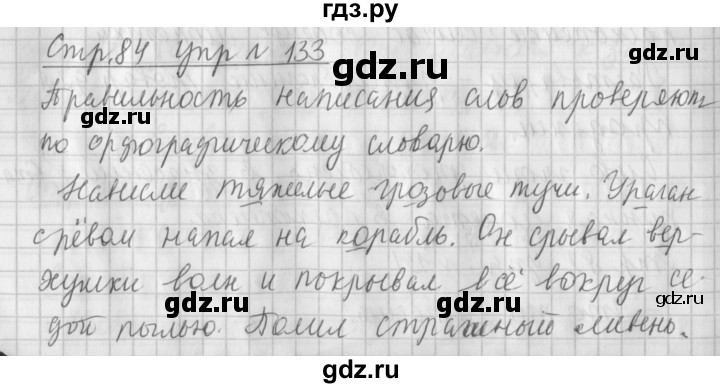 гдз.ру
Стр.84 упр № 133
gdz.ru gdz.ru
Правильность написания слов проверяют
gdz.ru
по орфографическому словарю.
gdz.ru
Нависли тяжелые грозовые тучи. Ураган
с рёвом напал на корабль. Он срывал вер-
gdz.ru
хушки волн и покрывал всё вокруг се-
gdz.ru gdz.ru gdz.ru
дой пылью. Полил страшный ливень.
gdz.ru